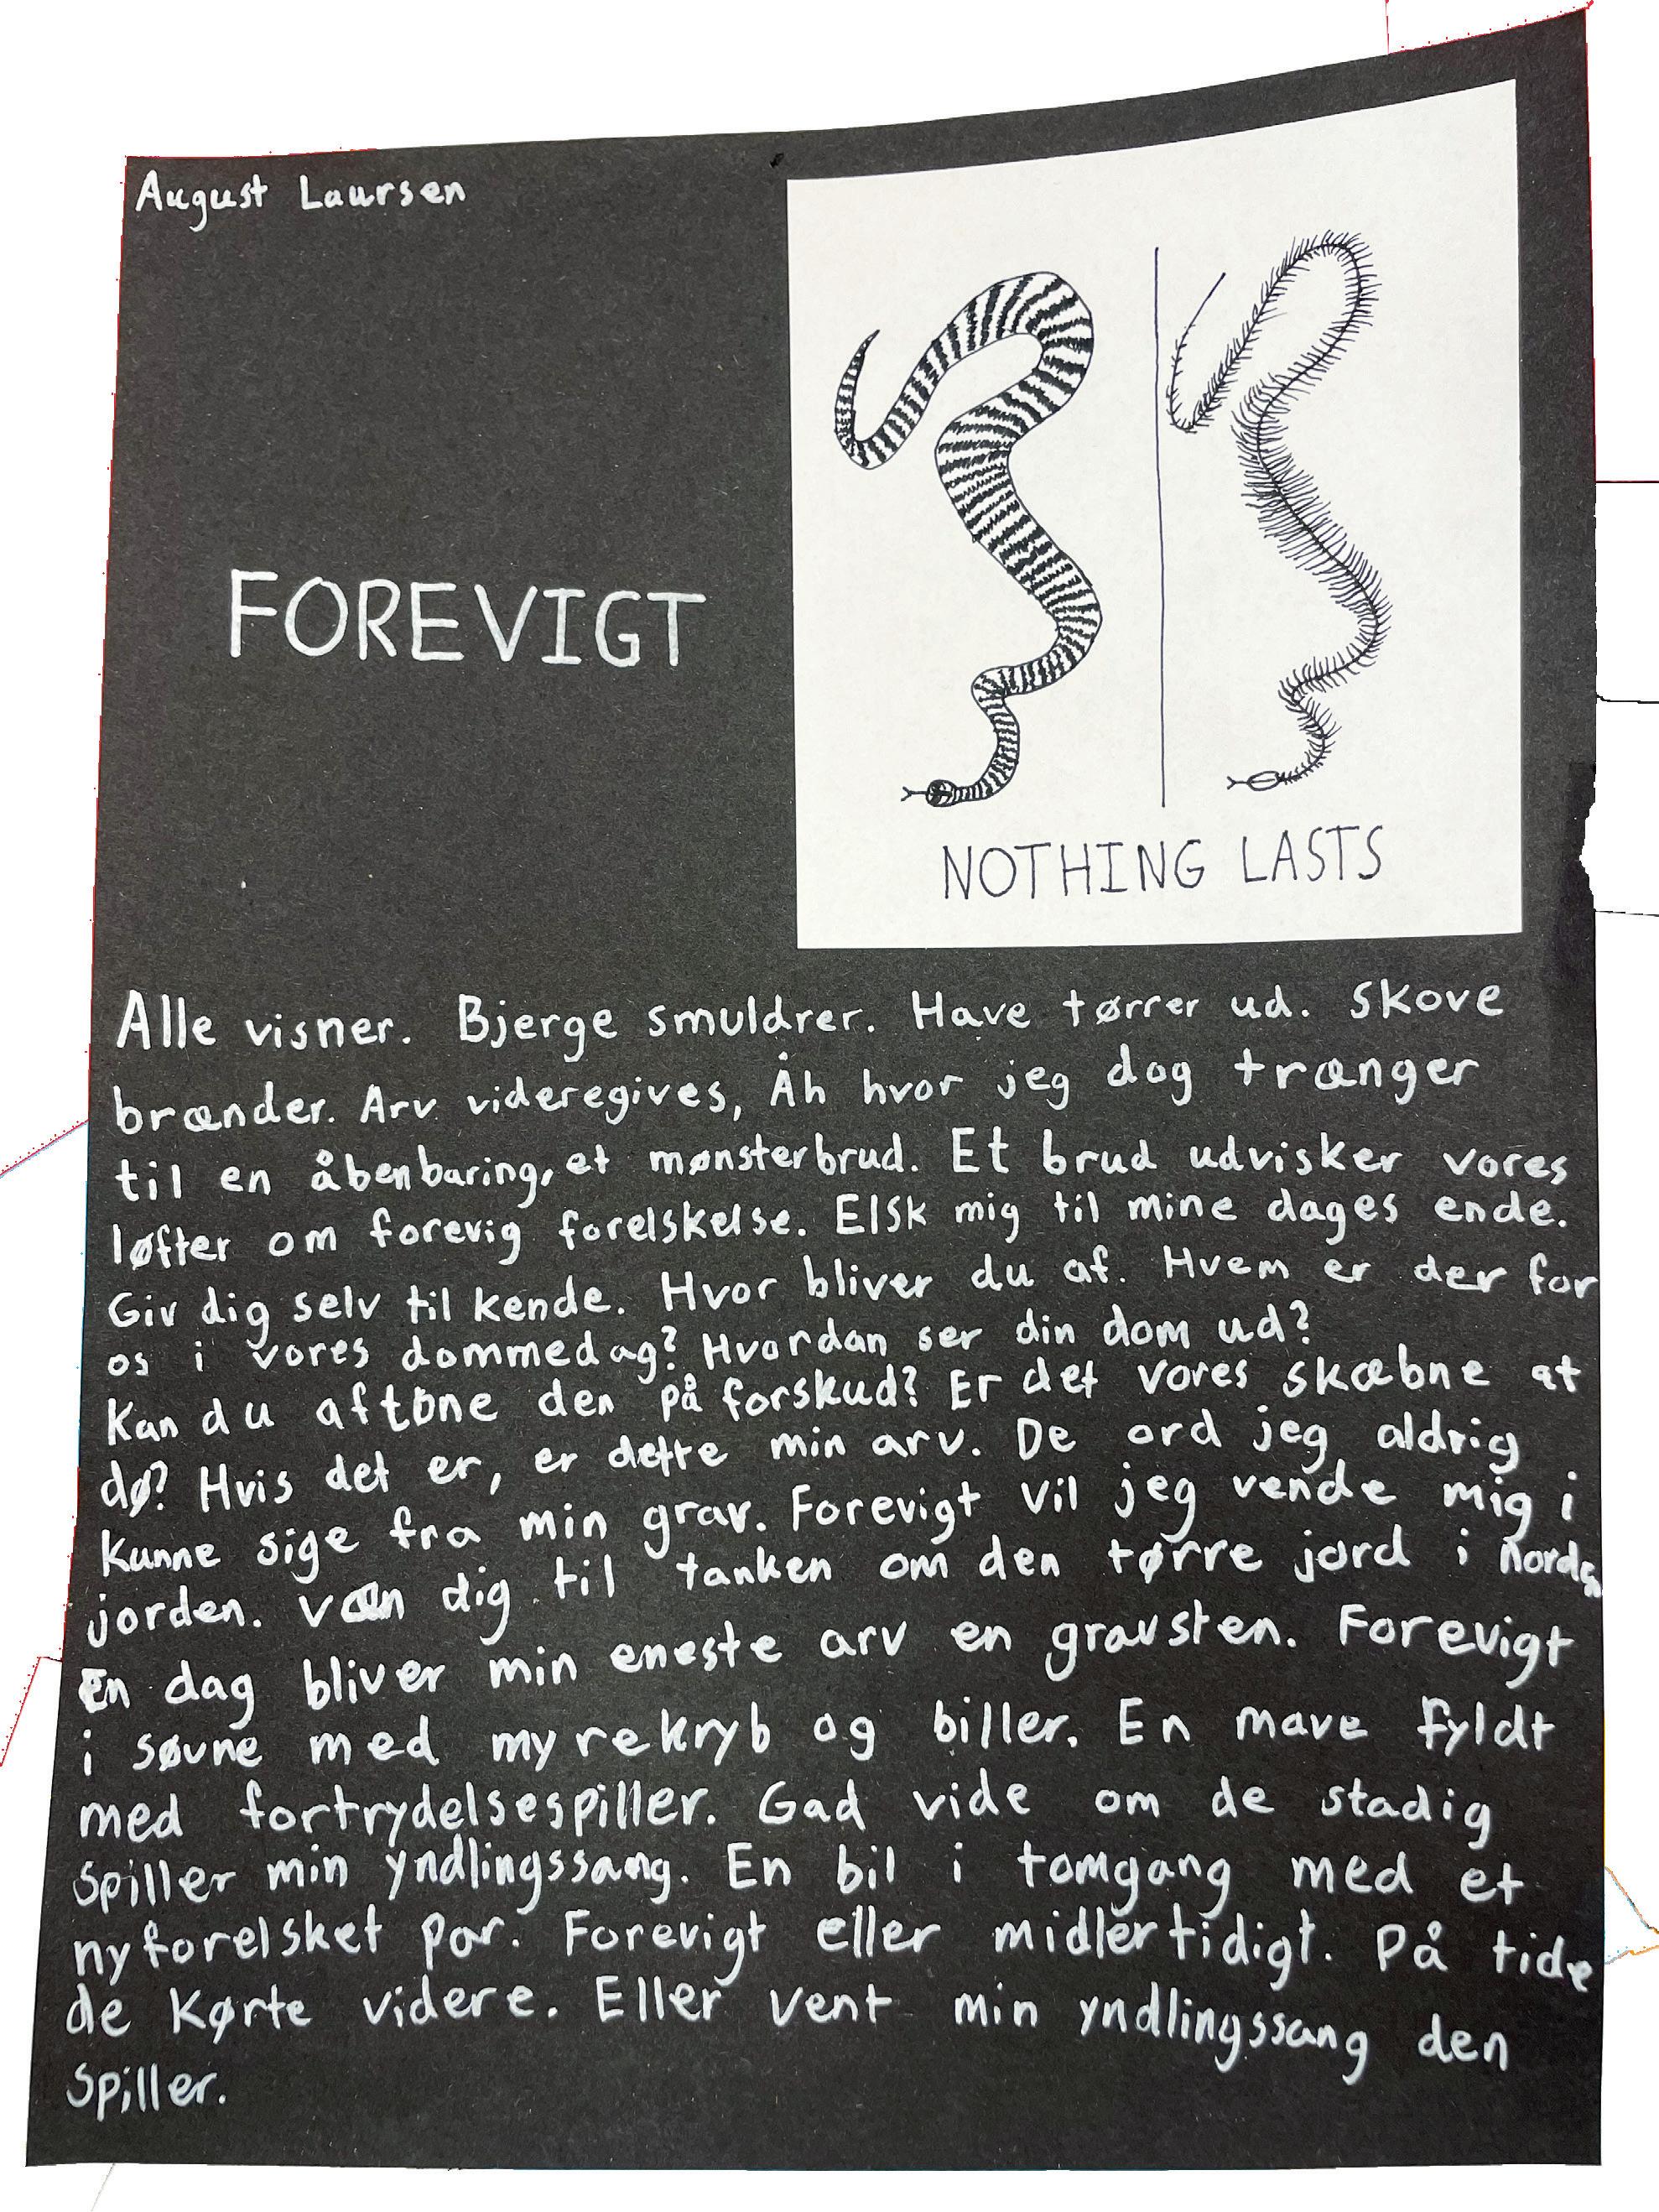 August Laursen
FOREVIGT
NOTHING LASTS
Alle visner. Bjerge smuldrer. Have tørrer ud. Skove
brænder. Arv videregives, Åh hvor jeg dog trænger
til en åbenbaring, et mønsterbrud. Et brud udvisker vores
løfter om forevig forelskelse. Elsk mig til mine dages ende.
Giv dig selv til kende. Hvor bliver du af. Hvem er der for
os i vores dommedag? Hvordan ser din dom ud?
Kan du aftone den på forskud? Er det vores skæbne at
dø? Hvis det er, er dette min arv. De ord jeg aldrig
kunne sige fra min grav. Forevigt vil jeg vende mig i
jorden. Væn dig til tanken om den tørre jord i
En dag bliver min eneste arv en gravsten. Forevigt
i søvne med myrekryb og biller. En mave fyldt
med fortrydelsespiller. Gad vide om de stadig
spiller min yndlingssang. En bil i tomgang med et
nyforelsket par. Forevigt eller midlertidigt. På tide
de kørte videre. Eller vent min yndlingssang den
spiller.